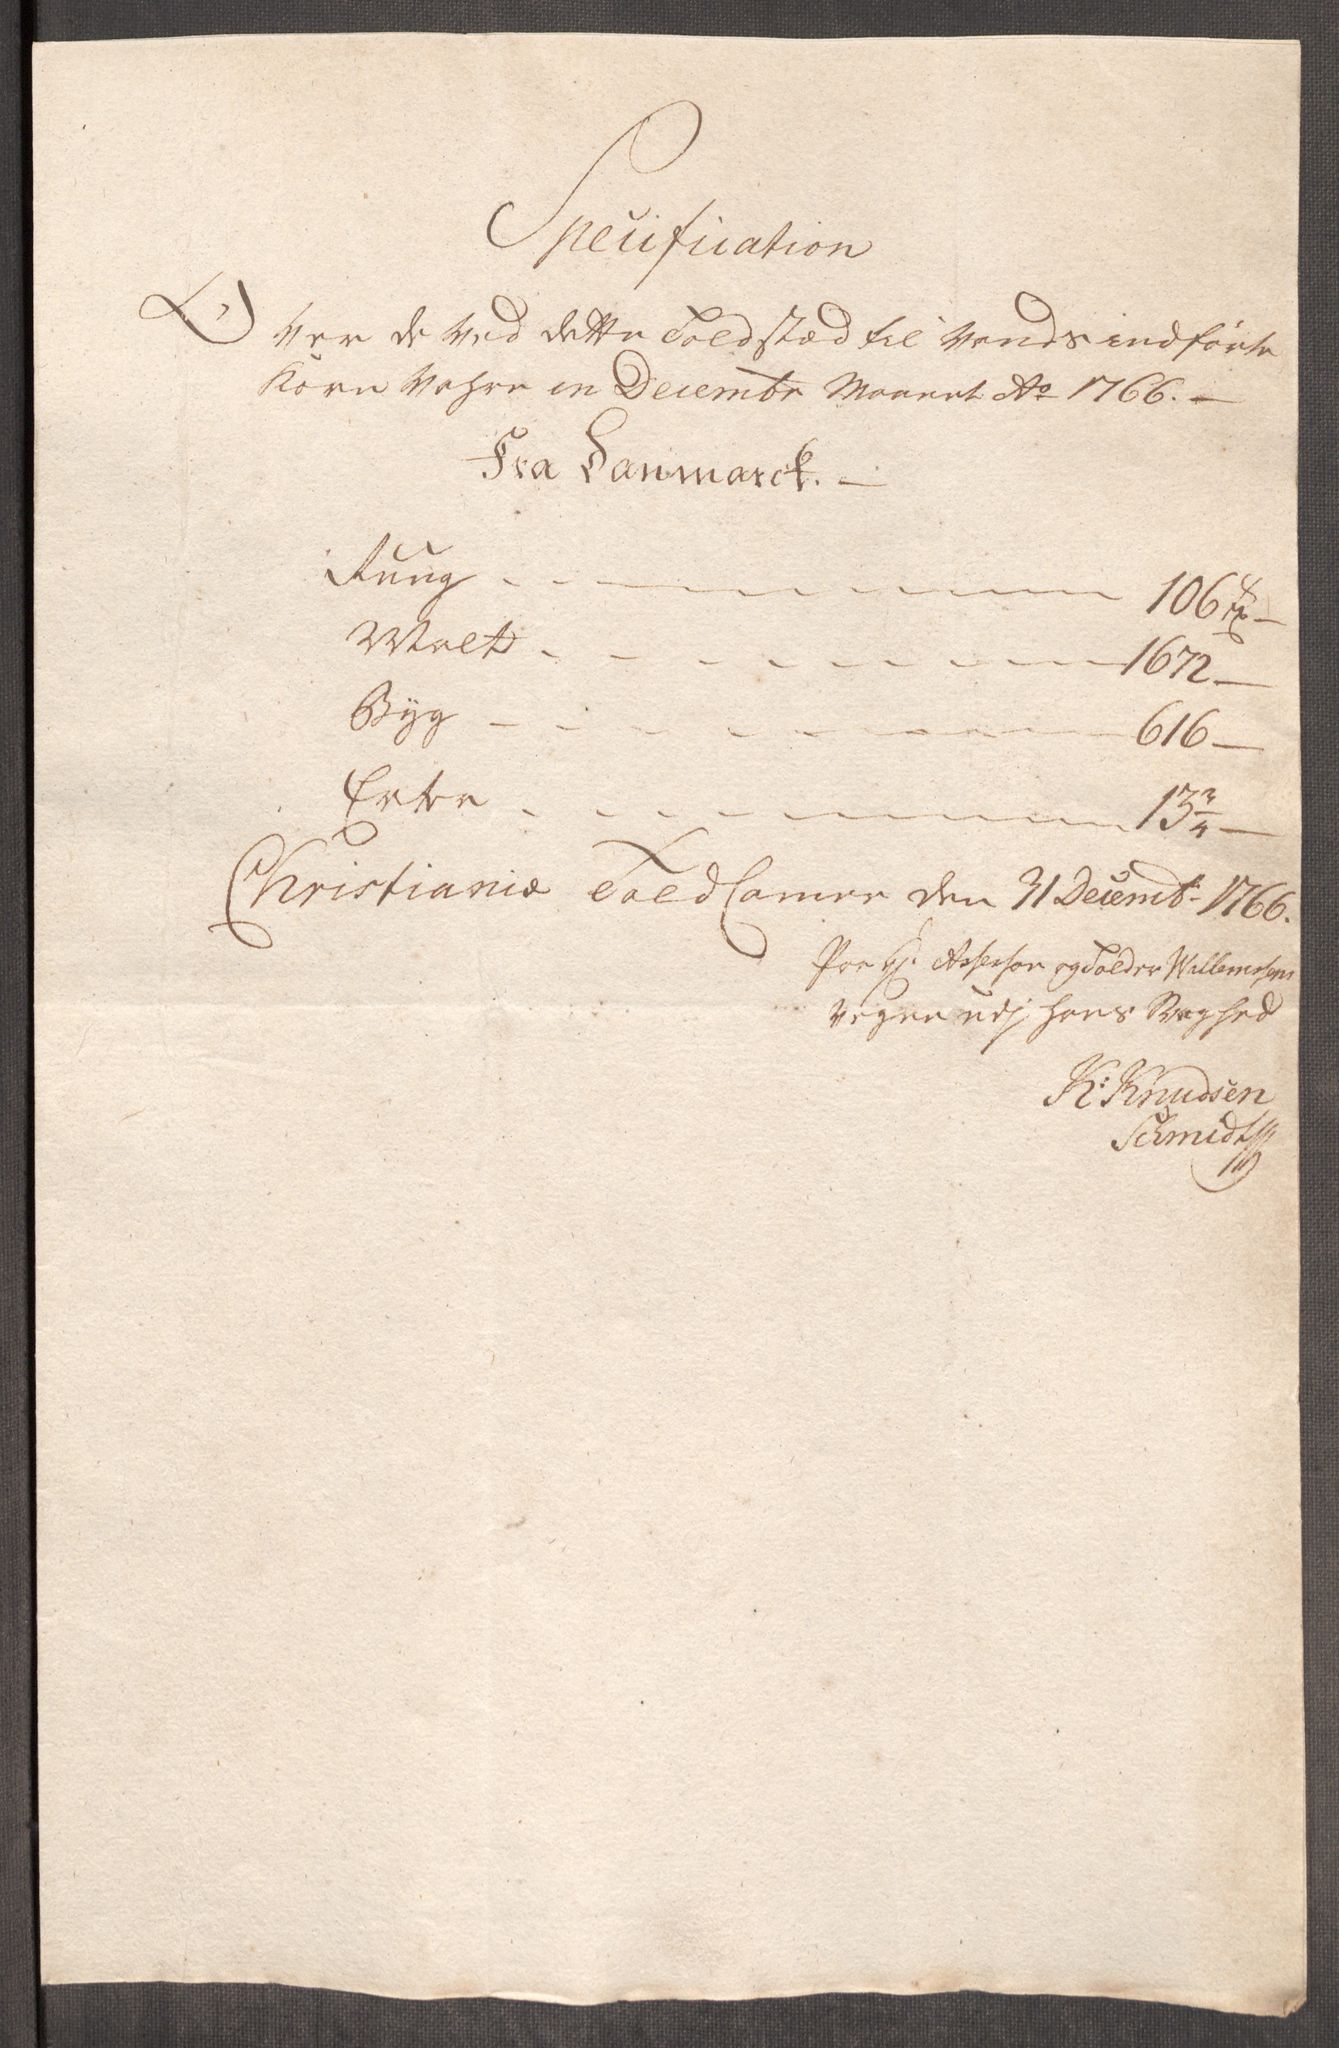 Specification
Over de ved dette Toldstæd til Vands indförte
Korn Vahre in Decembr Maanet Ao 1766. —
Fra Danmarck. —
Rúúg 106 —
Malt 1672 —
Byg 616 —
Erter 13 3/4 —
Christiania Told Camer den 31 Decembr 1766.
Paa Hr. Assessor og Tolder Willemsens
Vegne udj hans Svaghed
K: Knudsen
Schmidt